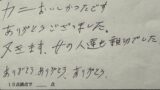 カニおいしかったです
ありがとうございました。
又きます、女の人達も親切でした
ありがとう、ありがとう、ありがとう、